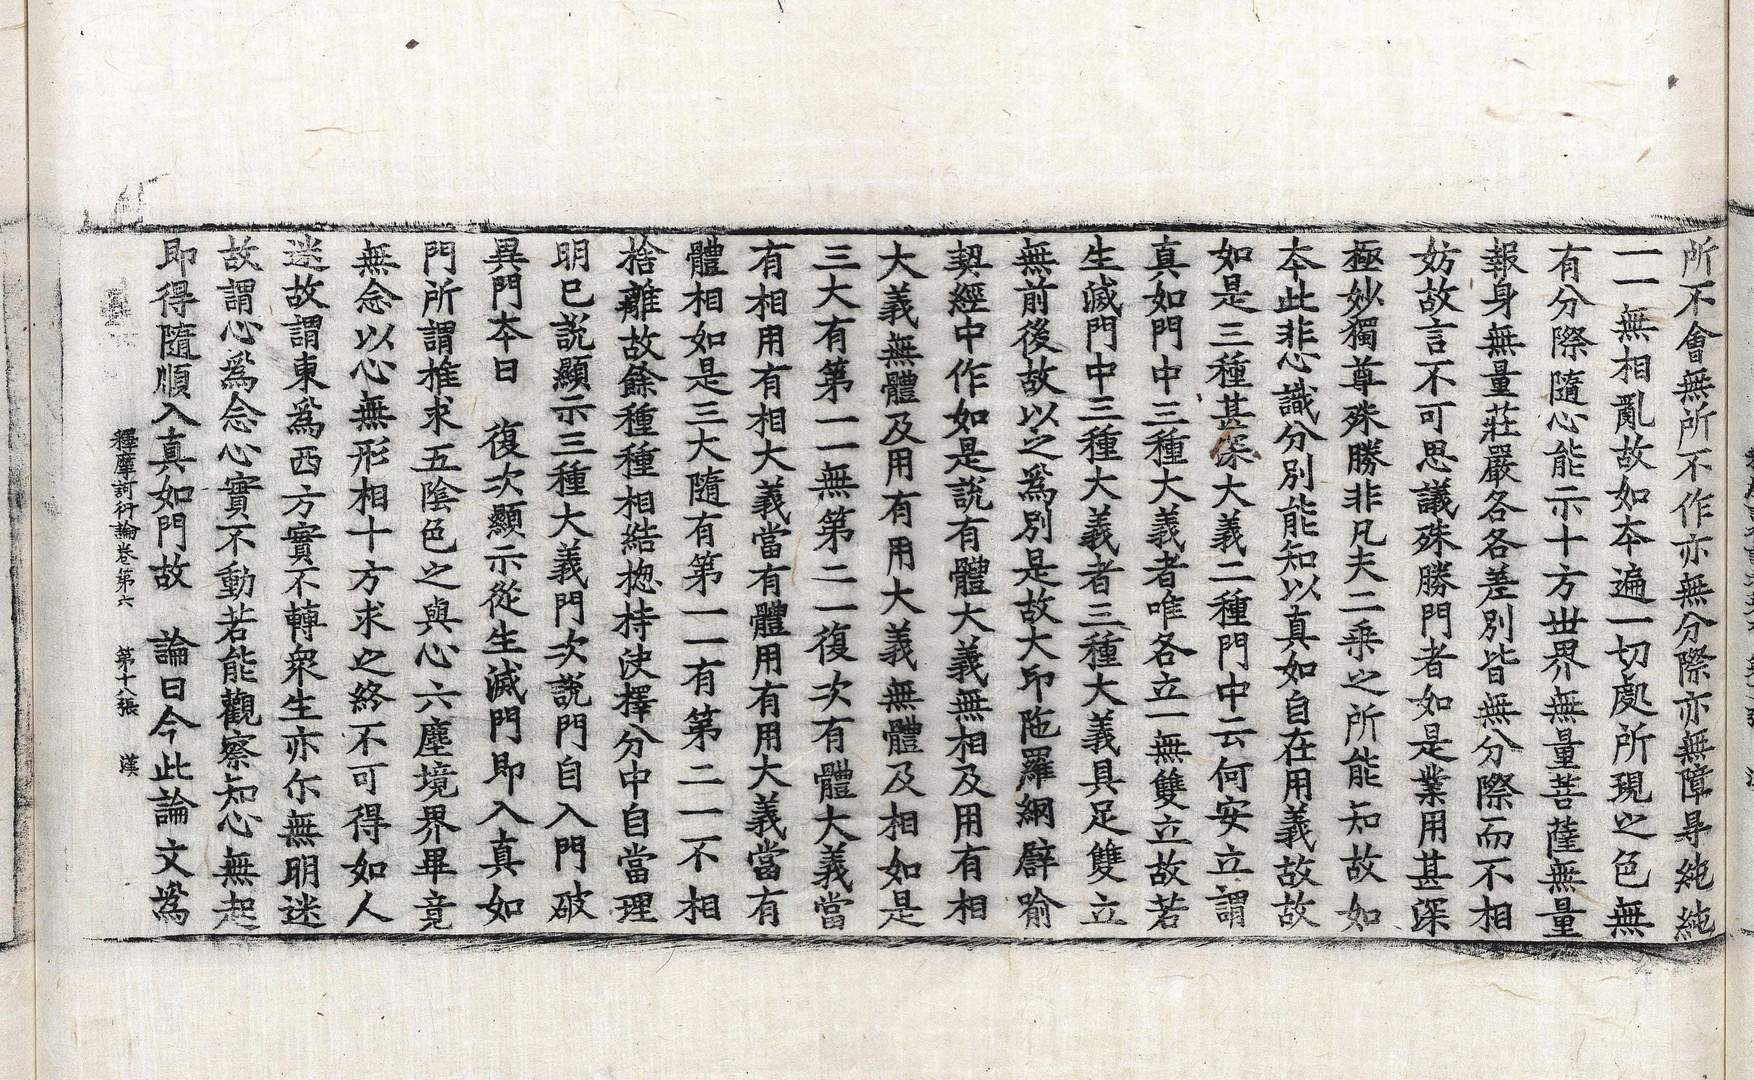 所不會無所不作亦無分際亦無障㝵純純
一一無相亂故如本遍一切處所現之色無
有分際隨心能示十方世界無量菩薩無量
報身無量莊嚴各各差別皆無分際而不相
妨故言不可思議殊勝門者如是業用甚深
極妙獨尊殊勝非凡夫二乗之所能知故如
本此非心識分別能知以真如自在用義故故
如是三種甚深大義二種門中云何安立謂
真如門中三種大義者唯各立一無雙立故若
生滅門中三種大義者三種大義具足雙立
無前後故以之為別是故大印陁羅網辟喻
契經中作如是說有體大義無相及用有相
大義無體及用有用大義無體及相如是
三大有第一一無第二一復次有體大義當
有相用有相大義當有體用有用大義當有
體相如是三大隨有第一一有第二一不相
捨離故餘種種相結揔持決擇分中自當理
明已説顯示三種大義門次說門自入門破
異門本曰 復次顯示從生滅門即入真如
門所謂推求五陰色之與心六塵境界畢竟
無念以心無形相十方求之終不可得如人
迷故謂東為西方實不轉衆生亦尒無明迷
故謂心為念心實不動若能觀察知心無起
即得隨順入真如門故 論曰今此論文為
釋摩訶衍論卷第六 第十八張 漢